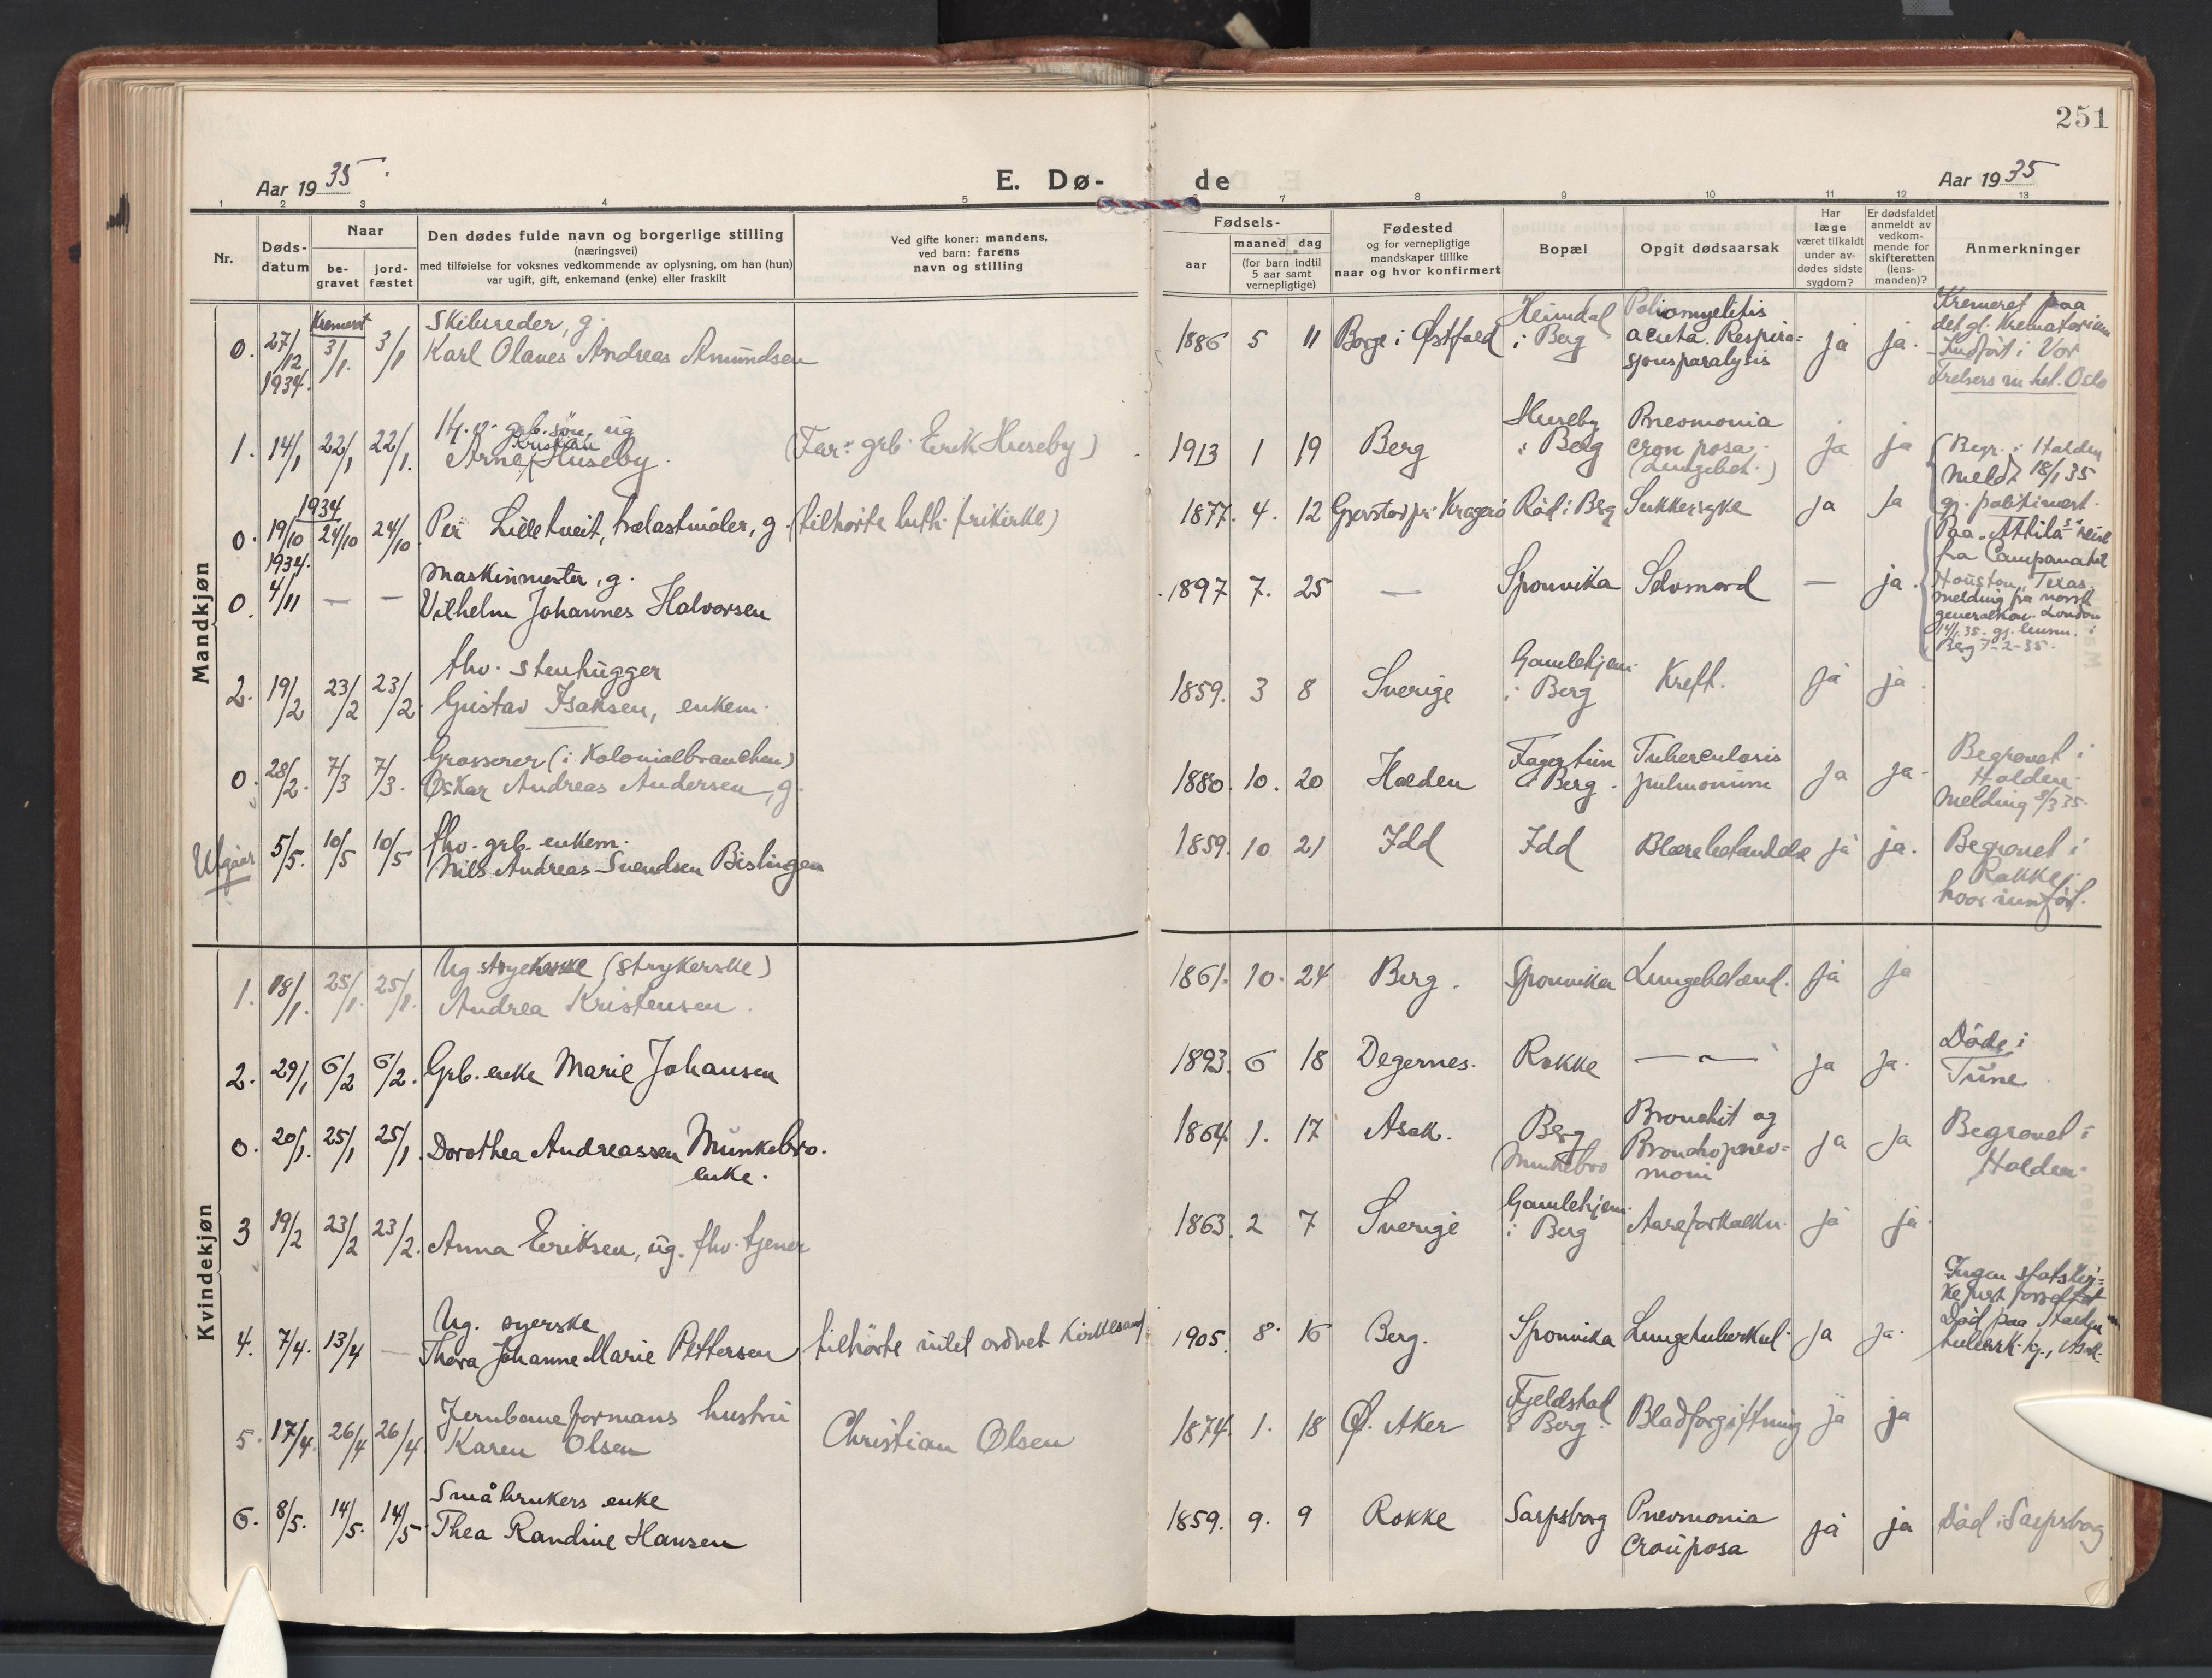 251
Aar 1935.
E. Dø-
de
Aar 1935
1 2 3 4 5 6 7 8 9 10 11 12 13
Nr.
Døds-
datum
Naar
be-
gravet
jord-
fæstet
Den dødes fulde navn og borgerlige stilling
(næringsvei)
med tilføielse for voksnes vedkommende av oplysning, om han (hun)
var ugift, gift, enkemand (enke) eller fraskilt
Ved gifte koner: mandens,
ved barn: farens
navn og stilling
Fødsels-
aar
maaned dag
(for barn indtil
5 aar samt
vernepligtige)
Fødested
og for vernepligtige
mandskaper tillike
naar og hvor konfirmert
Bopæl
Opgit dødsaarsak
Har
læge
været tilkaldt
under av-
dødes sidste
sygdom?
Er dødsfaldet
anmeldt av
vedkom-
mende for
skifteretten
(lens-
manden)?
Anmerkninger
Mandkjøn
0. 27/12 1934. Kremert 3/1. 3/1
Skibsreder, g.
Karl Olaves Andreas Amundsen
1886 5 11 Borge i Østfold
Heimdal
i Berg
Poliomyelitis
acuta. Respira=
sjonsparalysis
ja ja.
Kremeret paa
det gl. Krematorium
- Indført i Vor
Frelsers m.het. Oslo
1. 14/1 22/1 22/1.
Hj.v. grb. søn, ug
Kristian
Arne Huseby.
(Far: grb. Erik Huseby)
1913 1 19 Berg
Huseby
i Berg
Pneomonia
cron posa.
(Lungebet.)
ja ja
Begr. i Halden
Meldt 18/1 35
gj. politimest.
0. 19/10 1934 24/10 24/10
Per Lilletveit, trælastmåler, g.
(tilhørte luth. frikirke)
1877. 4. 12 Gjerstad pr. Kragerø Rød i Berg Sukkersyke ja ja
0. 1934. 4/11 — —
Maskinmester, g.
Vilhelm Johannes Halvorsen
1897 7. 25 — Sponvika Selvmord — ja.
Paa "Attila"s reise
fra Campana til
Houston, Texas.
melding fra norsk
generalkon. London
14/1.35. gj. lensm. i
Berg 7-2-35.
2. 19/2 23/2 23/2.
fhv. stenhugger
Gustav Isaksen, enkem.
1859. 3 8 Sverige
Gamlehjem.
i Berg
Kreft. ja ja.
0. 28/2. 7/3 7/3.
Grosserer (i Kolonialbranchen)
Oskar Andreas Andersen, g.
1880. 10. 20 Halden
Fagertun
i Berg.
Tuberculosis
pulmonum
ja ja.
Begravet i
Halden.
Melding 8/3 35.
Utgår 5/5. 10/5 10/5
fhv. grb. enkem.
Nils Andreas Svendsen Bislingen
1859. 10 21 Idd Idd Blærebetændelse ja ja.
Begravet i
Rokke,
hvor innført.
Kvindekjøn
1. 18/1. 25/1. 25/1.
Ug. stryekerske (strykerske)
Andrea Kristensen.
1861. 10. 24 Berg. Sponvika Lungebetænd. ja ja
2. 29/1 6/2 6/2. Grb. enke Marie Johansen
1893. 6 18 Degernes. Rokke — " — ja ja.
Døde i
Tune
0. 20/1. 25/1 25/1.
Dorothea Andreassen Munkebro.
enke.
1864. 1. 17 Asak.
Berg
Munkebro
Bronchit og
Bronchopnev=
moni
ja ja
Begravet i
Halden.
3 19/2 23/2 23/2. Anna Eriksen, ug. fhv. tjener
1863. 2 7 Sverige
Gamlehjem.
i Berg
Aareforkalkn. ja ja.
4. 7/4. 13/4 —
Ug. syerske
Thora Johanne Marie Pettersen
tilhørte intet ordnet kirkesamf.
1905. 8. 16 Berg. Sponvika Lungetuberkul. ja ja.
Ingen statskir=
Død paa Halden
tuberk. hj., Asak.
5. 17/4. 26/4 26/4.
Jernbaneformans hustru
Karen Olsen
Christian Olsen
1874. 1. 18 Ø. Aker
Fjeldstad
i Berg.
Blodforgiftning ja ja
6. 8/5. 14/5. 14/5.
Småbrukers enke
Thea Randine Hansen
1859. 9. 9 Rokke Sarpsborg
Pnevmonia
crouposa
ja ja Død i Sarpsborg